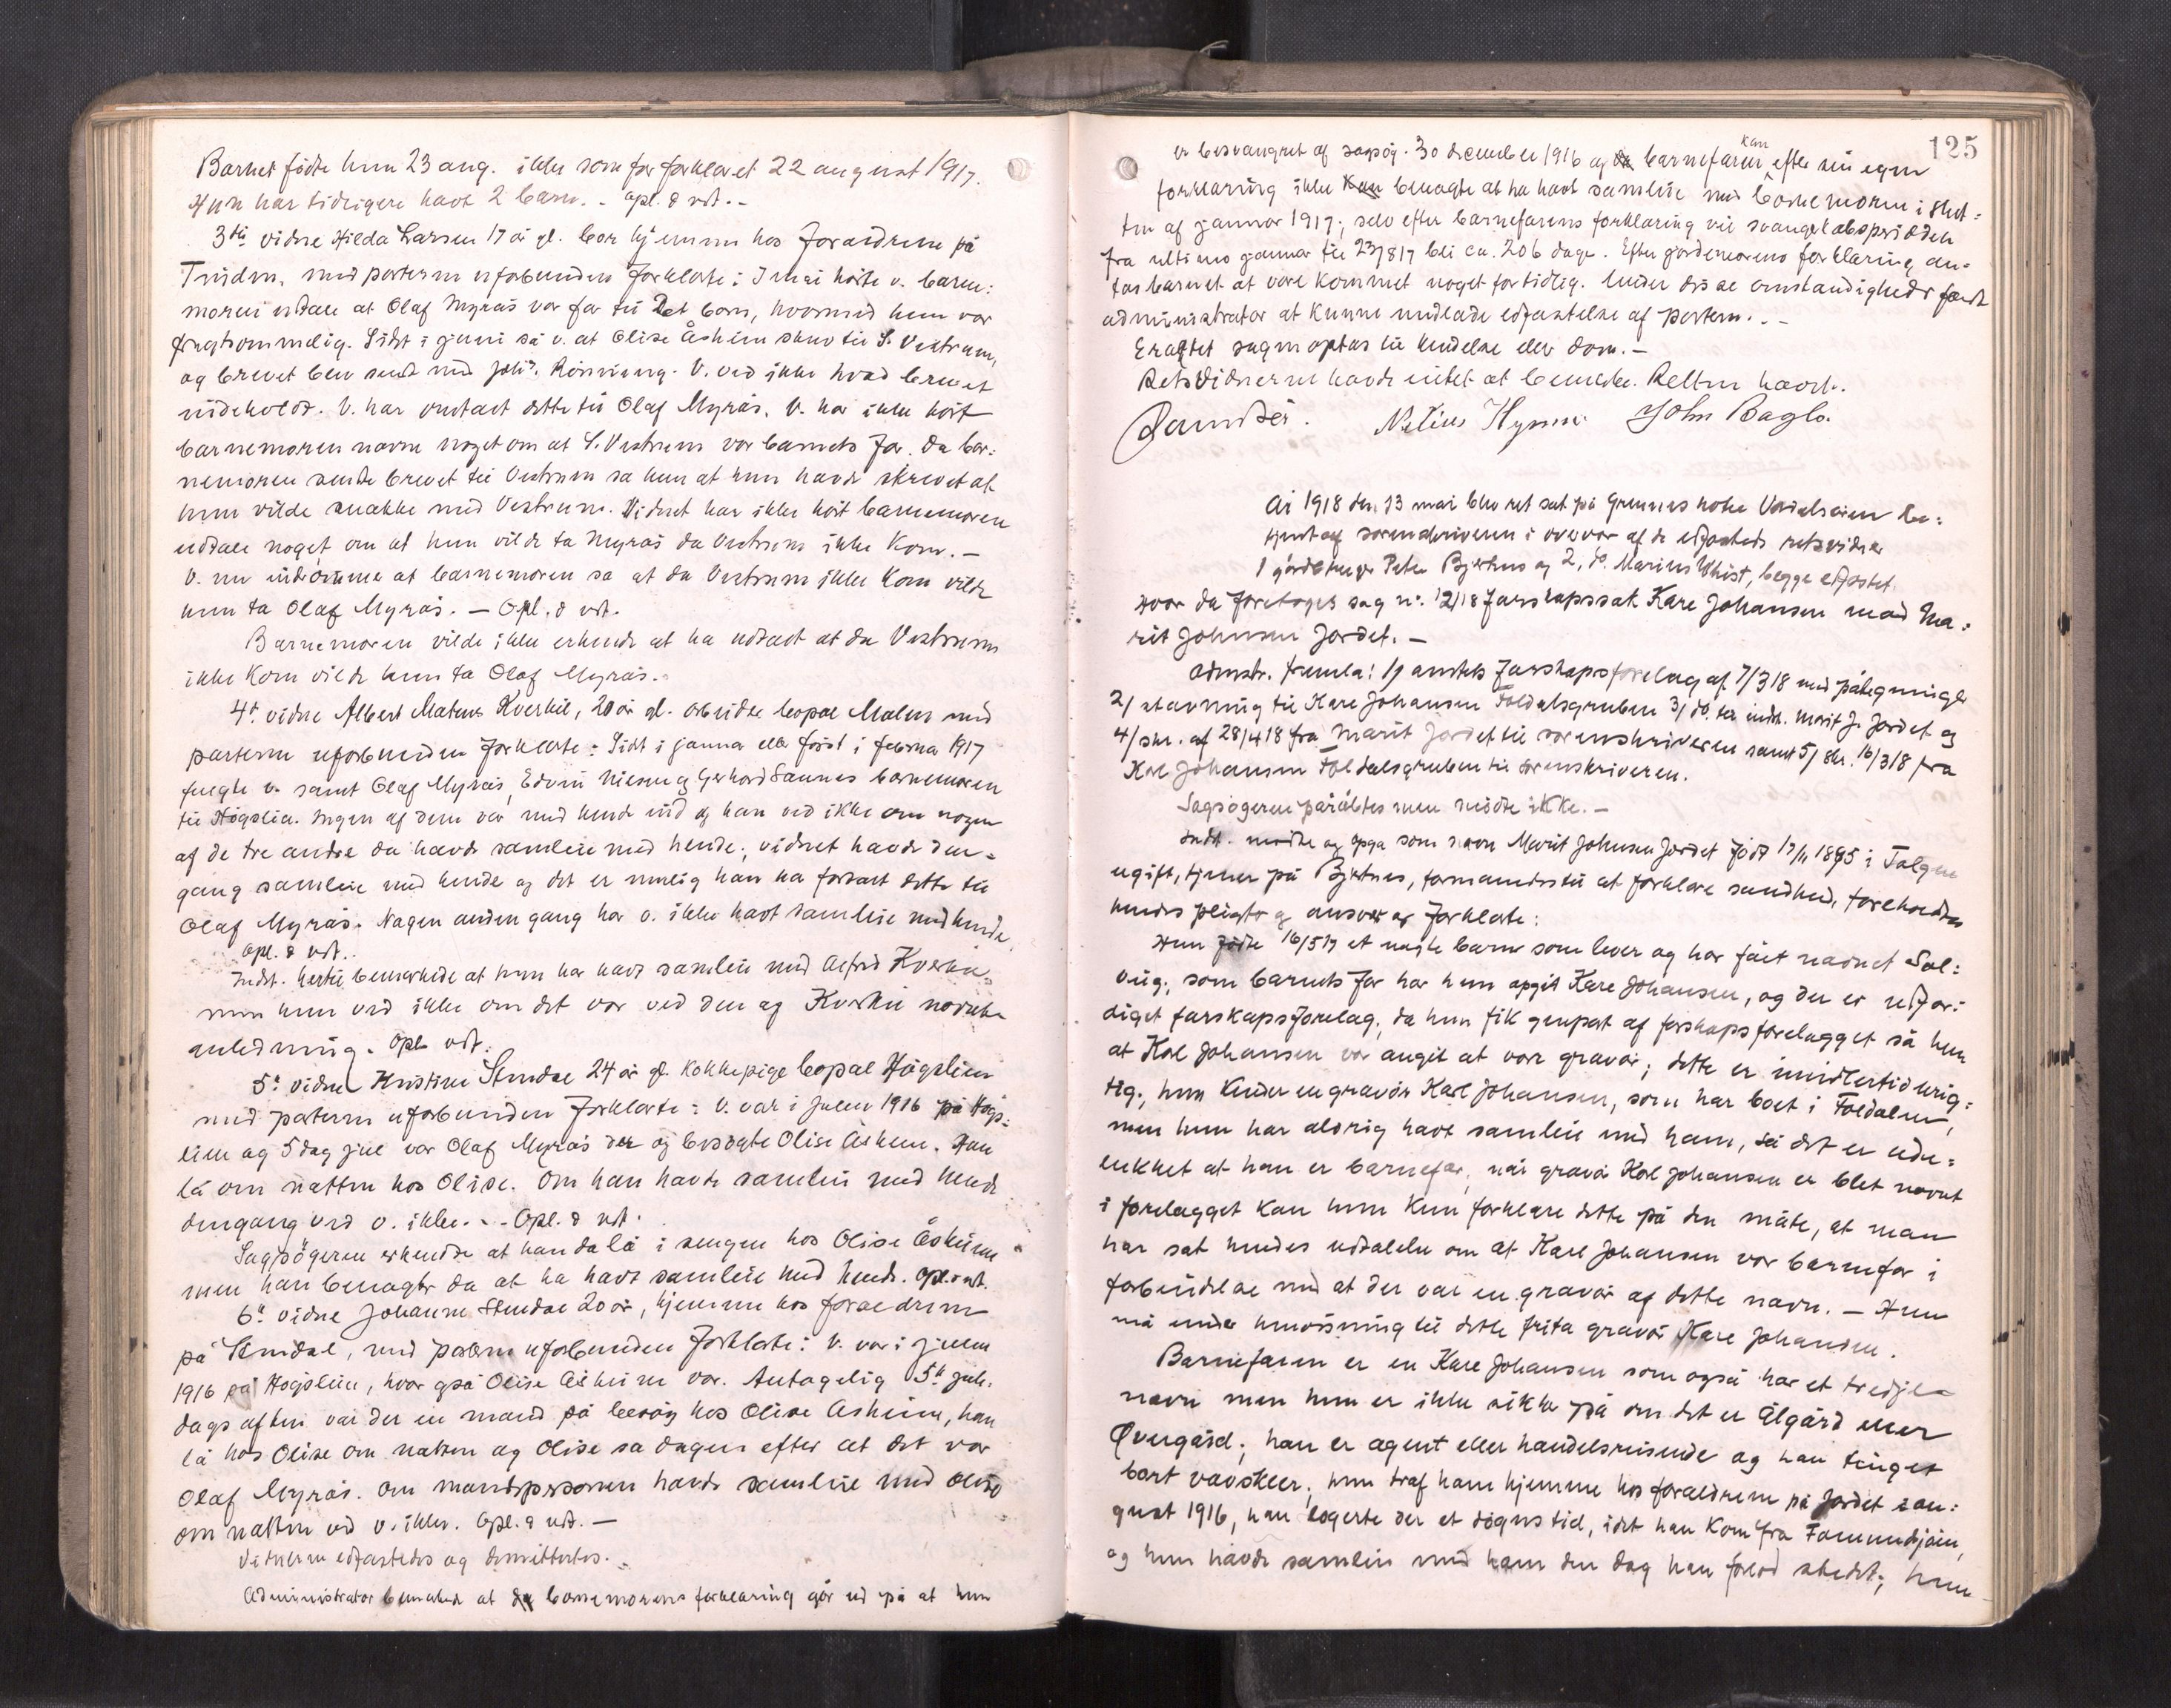 Barnet fødte hun 23 aug. ikke som før forklaret 22 august 1917.
Hun har tidligere havt 2 barn. - Opl. & vdt. -
3die vidne Hilda Larsen 17 år gl. bor hjemme hos forældrene på
Trøden, med parterne uforbunden forklarte: I mai hørte v. barne=
moren uttale at Olaf Myrås var far til det barn, hvormed hun var
frugtsommelig. Sidst i juni så v. at Olise Åsheim skrev til S. Vestrum,
og brevet blev sendt med Johs. Rönning. V. ved ikke hvad brevet
indeholdt. V. har omtalt dette til Olaf Myrås. V. har ikke hørt
barnemoren nævne noget om at S. Vestrum var barnets far. Da bar=
nemoren sendte brevet til Vestrum sa hun at hun havde skrevet at
hun vilde snakke med Vestrum. Vidnet har ikke hørt barnemoren
udtale noget om at hun vilde ta Myrås da Vestrum ikke kom. -
V. nu indrømme at barnemoren sa at da Vestrum ikke kom vilde
hun ta Olaf Myrås. - Opl. & vdt.
Barnemoren vilde ikke erkjende at ha udtalt at da Vestrum
ikke kom vilde hun ta Olaf Myrås. -
4de vidne Albert Mateus Kverkil, 20 år gl. arbeider bopæl Malm med
parterne uforbunden forklarte: Sidst i januar eller først i februar 1917
fulgte v. samt Olaf Myrås, Edvin Nielsen og Gerhard Saunes barnemoren
til Høgslia. Ingen af dem var med hende ind og han ved ikke om nogen
af de tre andre da havde samleie med hende; vidnet havde den=
gang samleie med hende og det er mulig han ha fortalt dette til
Olaf Myrås. Nogen anden gang har v. ikke havt samleie med hende.
Opl. & vdt. -
Indst. hertil bemerkede at hun har havt samleie med Alfred Kverkil
men hun ved ikke om det var ved den af Kverkil nævnte
anledning. Opl. vdt.
5te vidne Kristine Stendal 24 år gl. kokkepige bopæl Høgslien
med parterne uforbunden forklarte: V. var i julen 1916 på Høgs=
lien og 5 dag jul var Olaf Myrås der og besøgte Olise Åsheim. Han
lå om natten hos Olise. Om han havde samleie med hende
dengang ved v. ikke. - Opl. & vdt.
Sagsøgeren erkjendte at han da lå i sengen hos Olise Åsheim
men han benægter da at ha havt samleie med hende. Opl. & vdt.
6te vidne Johanne Stendal 20 år, hjemme hos forældrene
på Stendal, med parterne uforbunden forklarte: V. var i julen
1916 på Høgslien, hvor også Olise Åsheim var. Antagelig 5te jule=
dags aften var der en mand på besøg hos Olise Åsheim, han
lå hos Olise om natten og Olise sa dagen efter at det var
Olaf Myrås. Om mandspersonen havde samleie med Olise
om natten ved v. ikke. Opl. & vdt. -
Vidnerne edfæstedes og dimitteredes. -
Administrator bemerket at barnemorens forklaring går ud på at hun
125
er besvangret af sagsøg. 30 december 1916 og kan barnefaren efter sin egen
forklaring ikke benægte at ha havt samleie med barnemoren i slut=
ten af januar 1917; selv efter barnefarens forklaring vil svangerskabsperioden
fra ultimo januar til 23/8 17 bli ca. 206 dage. Efter jordemorens forklaring an=
tas barnet at være kommet noget for tidlig. Under disse omstændigheder fandt
administrator at kunne undlade edfæstelse af parterne. -
Eragtet sagen optas til kjendelse eller dom. -
Retsvidnerne havde intet at bemerke. Retten hævet.
Nelius Hynne John Baglo.
År 1918 den 13 mai blev ret sat på Grunnes hotel Vordalsøren be=
tjent af sorenskriveren i overvær af de edfæstede retsvidner
1 gårdbruger Peter Bjertnes og 2, do. Marius Whist, begge edfæstet.
Hvor da foretoges sag nr. 12/18 Farskapssak Karl Johansen mod Ma=
rit Johnsen Jordet. -
Admstr. fremla: 1/ amtets farskapsforelæg af 7/3 18 med påtegninger
2/ stævning til Karl Johansen Foldalsgruben 3/ do. til indst. Marit J. Jordet og
4/ skr. af 28/4 18 fra Marit Jordet til sorenskriveren samt 5/ skr. 16/3 18 fra
Karl Johansen Foldalsgruben til sorenskriveren.
Sagsøgeren påråbtes men mødte ikke. -
Indst. mødte og opga som navn Marit Johnsen Jordet født 17/11 1895 i Tolgen
ugift, tjener på Bjertnes, formanedes til at forklare sandhed, foreholdtes
hendes pligter og ansvar og forklarte:
Hun fødte 16/5 17 et uægte barn som lever og har fåt navnet Sol=
veig; som barnets far har hun opgit Karl Johansen, og der er utfær=
diget farskapsforelæg; da hun fik gjenpart af farskapsforelægget så hun
at Karl Johansen var angit at være gravør; dette er imidlertid urig=
tig; hun kjender en gravør Karl Johansen, som har boet i Foldalen,
men hun har aldrig havt samleie med ham, så det er ude=
lukket at han er barnefar; når gravør Karl Johansen er blet nævnt
i forelægget kan hun kun forklare dette på den måte, at man
har sat hendes udtalelse om at Karl Johansen var barnefar i
forbindelse med at der var en gravør af dette navn. - Hun
må under henvisning til dette frita gravør Karl Johansen.
Barnefaren er en Karl Johansen som også har et tredje
navn men hun er ikke sikker på om det er Ålgård eller
Øvergård; han er agent eller handelsreisende og han tinget
bort vævskeer; hun traf ham hjemme hos forældrene på Jordet i au=
gust 1916, han logerte der et døgns tid, idet han kom fra Fæmundsjøen,
og hun havde samleie med ham den dag han forlod stedet; hun